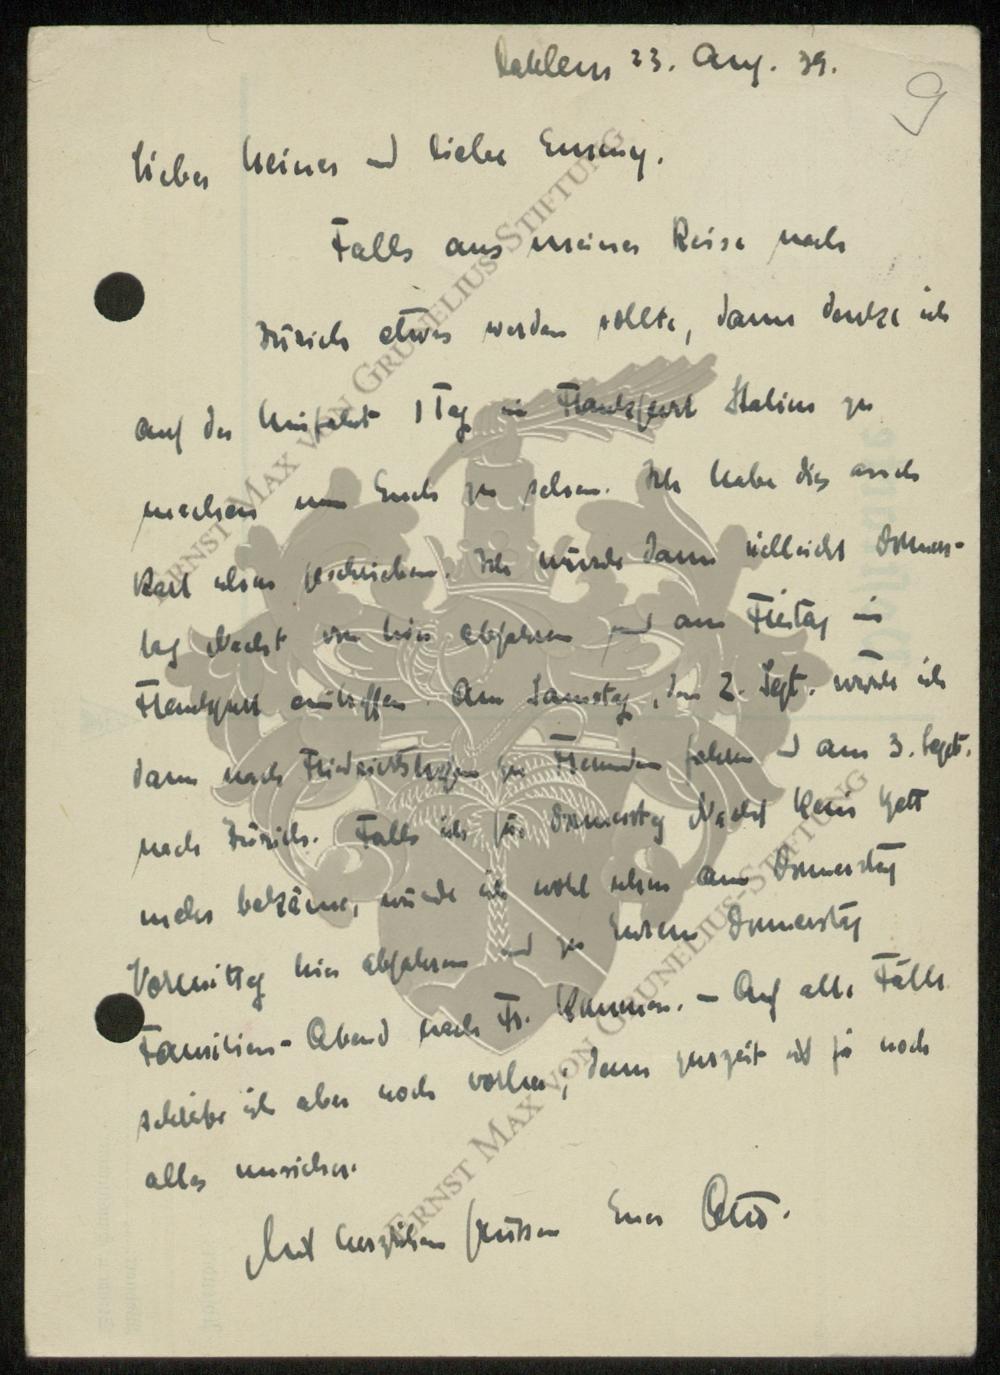 Dahlem 23. Aug. 39.
9
Lieber Heiner und liebe
Falls aus meiner Reise nach
Zürich etwas werden sollte, dann denke ich
auf der Hinfahrt 1 Tag in Frankfurt Station zu
machen um Euch zu sehen. Ich habe dies auch
Karl schon geschrieben. Ich würde dann vielleicht Donners-
tag Nacht von hier abfahren und am Freitag in
Frankfurt eintreffen. Am Samstag, den 2. Sept. würde ich
dann nach Friedrichshafen zu Freunden fahren und am 3. Sept.
nach Zürich. Falls ich für Donnerstag Nacht kein Bett
mehr bekäme, würde ich wohl schon am Donnerstag
Vormittag hier abfahren und zu Eurem Donnerstag
Familien-Abend nach Fr. kommen. – Auf alle Fälle
schreibe ich aber noch vorher; denn zurzeit ist ja noch
alles unsicher.
Mit herzlichen Grüssen Euer Otto.
ERNST MAX VON GRUNELIUS-STIFTUNG
ERNST MAX VON GRUNELIUS-STIFTUNG